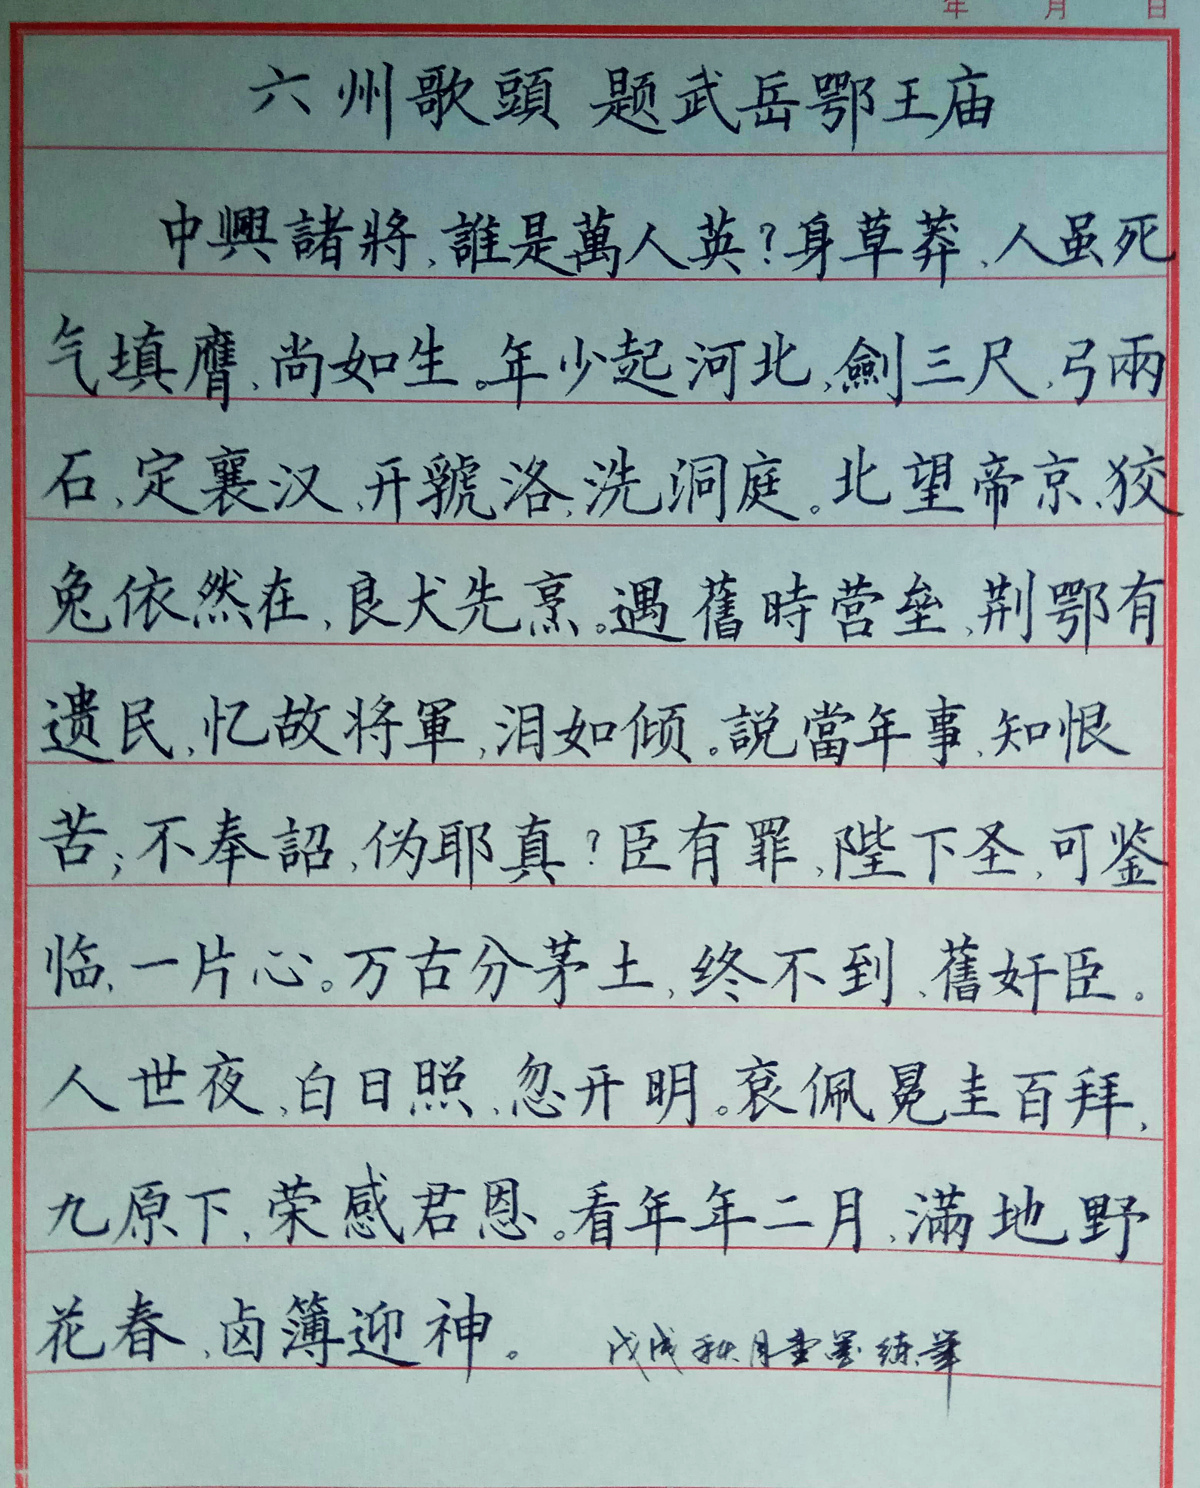 年 月 日
六州歌頭 题武岳鄂王庙
中興諸將、誰是萬人英？身草莽、人虽死
气填膺、尚如生。年少起河北、劍三尺、弓兩
石、定襄汉、开虢洛、洗洞庭。北望帝京、狡
兔依然在、良犬先烹。遇舊時营垒、荆鄂有
遗民、忆故将軍、泪如倾。説當年事、知恨
苦；不奉詔、伪耶真？臣有罪、陛下圣、可鉴
临、一片心。万古分茅土、终不到、舊奸臣。
人世夜、白日照、忽开明。衮佩冕圭百拜、
九原下、荣感君恩。看年年二月、滿地野
花春、卤簿迎神。
戊戌秋月 练筆